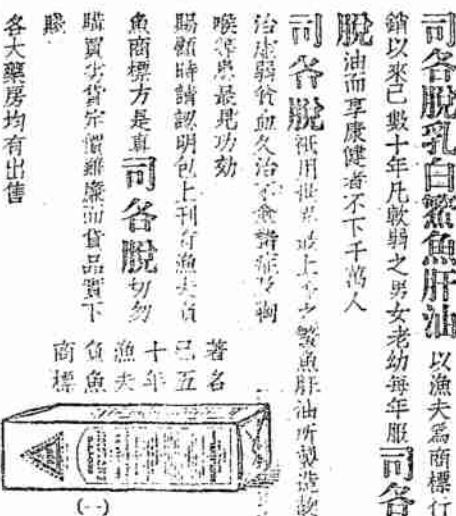 司各脫乳白鰵魚肝油 以漁夫為商標行
銷以來已數十年凡軟弱之男女老幼每年服司各
脫油而享康健者不下千萬人
司各脫祇用世界最上等之鰵魚肝油所製造故
治虛弱貧血久治不愈諸症及胸
喉等患最見功効
賜顧時請認明包上刊有漁夫負
魚商標方是真司各脫切勿
購買劣貨定價雖廉而貨品實下
賤
各大藥房均有出售
著名
已五
十年
漁夫
負魚
商標
(一)